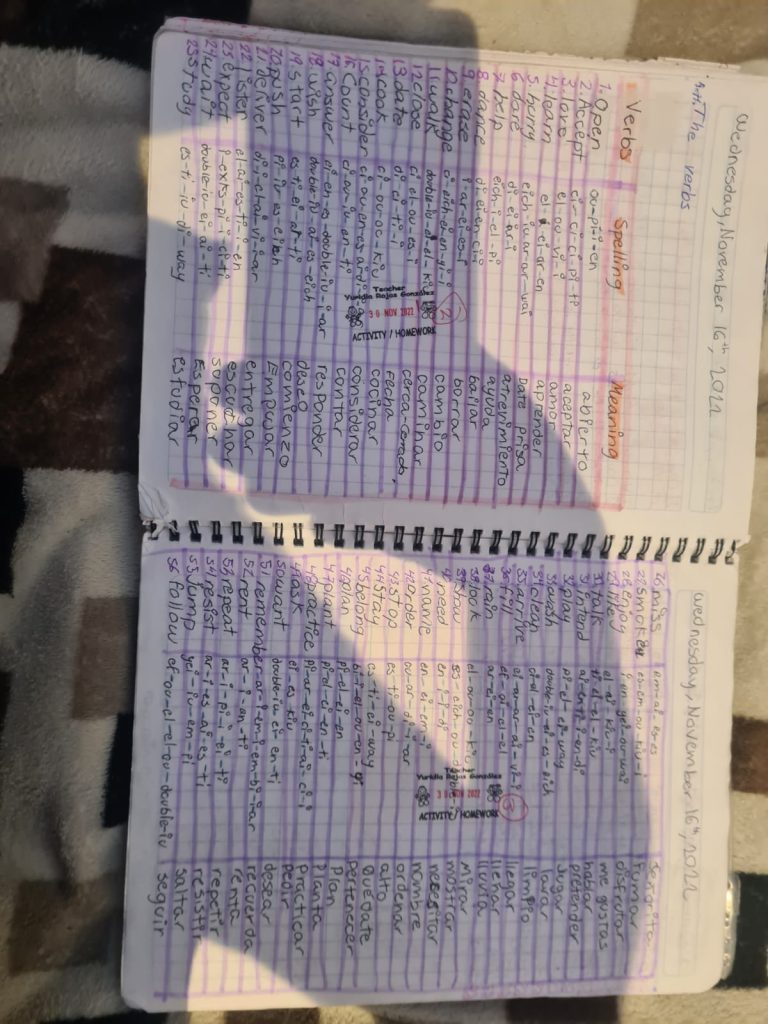 Wednesday, November 16th, 2022
The verbs
Verbs Spelling Meaning
1. Open ou-pi-i-en abierto
2. Accept ei-ci-ci-i-pi-ti aceptar
3. love el-ou-vi-i amor
4. learn el-i-ei-ar-en aprender
5. hurry eich-iu-ar-ar-wai Date prisa
6. dare di-ei-ar-i atrevimiento
7. help eich-i-el-pi ayuda
8. dance di-ei-en-ci-i bailar
9. erase i-ar-ei-es-i borrar
10. change ci-eich-ei-en-yi-i cambio
11. walk double-iu-ei-el-kiu caminar
12. close ci-el-ou-es-i cerca-cerrado.
13. date di-ei-ti-i fecha
14. cook ci-ou-ou-kiu cocinar
15. consider ci-ou-en-es-ai-di-i-ar considerar
16. Count ci-ou-iu-en-ti contar
17. answer ei-en-es-double-iu-i-ar responder
18. wish double-iu-ai-es-eich deseo
19. start es-ti-ei-ar-ti comienzo
20. push pi-iu-es-eich Empujar
21. deliver di-i-el-ai-vi-i-ar entregar
22. listen el-ai-es-ti-i-en escuchar
23 expect i-exks-pi-i-ci-ti suponer
24 wait double-iu-ei-ai-ti Esperar
25 study es-ti-iu-di-way estudiar
Teacher
Yuridia Rojas González
30 NOV 2022
ACTIVITY / HOMEWORK
2
Wednesday, November 16th, 2022
26 miss em-ai-es-es
27 smoke es-em-ou-kiu-i fumar
28 enjoy i-en-yei-ou-wai disfrutar
me gustas
30 talk ti-ei-el-kiu hablar
31 intend ai-en-ti-i-en-di pretender
32 play pi-el-ei-way Jugar
33 wash double-iu-ei-es-eich lavar
34 clean ci-el-i-ei-en limpio
35 arrive ei-ar-ar-ai-vi-i llegar
36 fill ef-ai-el-el llenar
37 rain ar-ei-ai-en lluvia
38 look el-ou-ou-kiu Mirar
39 show es-eich-ou-double-iu mostrar
40 need en-i-i-di necesitar
41 name en-ei-em-i nombre
42 order ou-ar-di-i-ar ordenar
43 stop es-ti-ou-pi alto
44 stay es-ti-ei-way Quédate
45 belong bi-i-el-ou-en-yi pertenecer
46 plan pi-el-ei-en Plan
47 plant pi-el-ei-en-ti Planta
48 practice pi-ar-ei-ci-ti-ai-ci-i Practicar
49 ask ei-es-kiu pedir
50 want double-iu-ei-en-ti desear
51 remember ar-i-em-i-em-bi-i-ar recuerda
52 rent ar-i-en-ti renta
53 repeat ar-i-pi-i-ei-ti repetir
54 resist ar-i-es-ai-es-ti resistir
55 Jump yei-iu-em-pi saltar
56 follow ef-ou-el-el-ou-double-iu seguir
Teacher
Yuridia Rojas González
30 NOV 2022
ACTIVITY / HOMEWORK
3